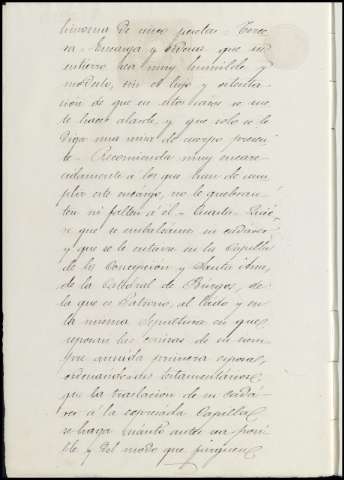 limosna de unas pesetas = Terce
ra = Encarga y ordena que su
entierro sea muy humilde y
modesto, sin el lujo y ostenta
cion de que en estos casos se sue
le hacer alarde, y que solo se le
diga una misa de cuerpo presen
te = Recomienda muy encare
cidamente á los que han de cum
plir este encargo, no le quebran
ten ni falten á él = Cuarta = Quie
re que se embalsame su cadaver
y que se le entierre en la Capilla
de la Concepción y Santa Ana,
de la Catedral de Burgos, de
la que es Patrono, al lado y en
la misma sepultura en que
reposan las cenizas de su siem
pre querida primera esposa,
ordenando á sus testamentarios
que la traslacion de su cadá
ver á la expresada Capilla
se haga cuanto antes sea posi
ble y del modo que juzguen